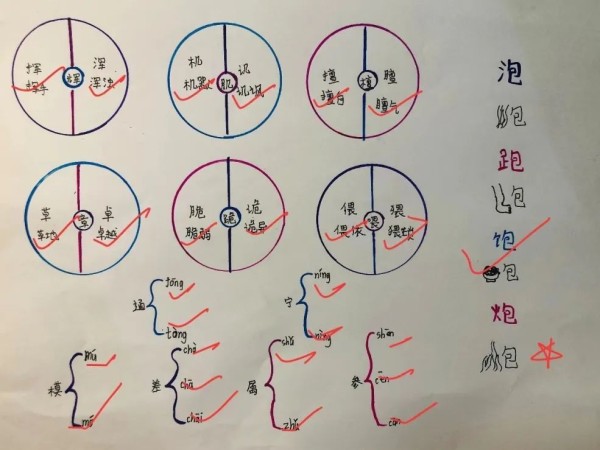 挥 浑
挥手 辉 浑浊
机 讥
机器 肌 讥讽
擅 膻
擅自 膻气
草 卓
草地 卓越
脆 诡
脆弱 跪 诡异
偎 猥
偎依 猥琐
泡
包
跑
包
饱
包
炮
包
通
tōng
tòng
宁
níng
nìng
模
mú
mó
差
chà
chā
chāi
属
shǔ
zhǔ
参
shēn
cēn
cān